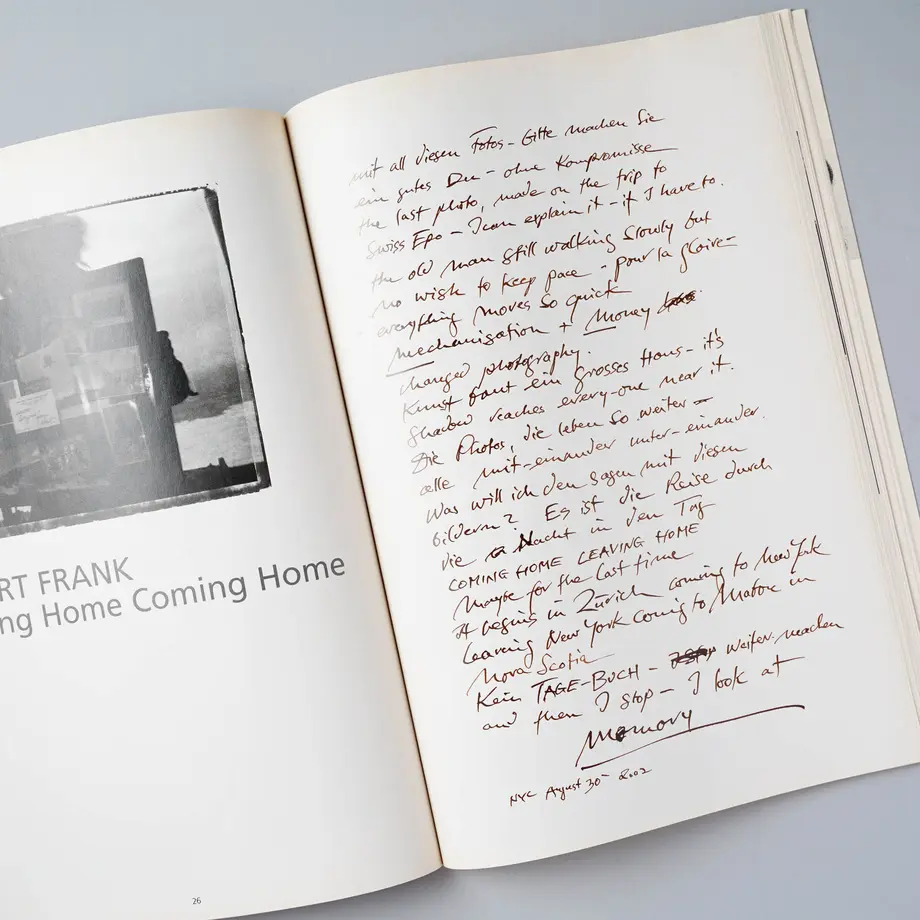 RT FRANK
ng Home Coming Home
26
mit all diesen Fotos – Bitte machen Sie
ein gutes Du – ohne Kompromisse
the last photo, made on the trip to
Swiss Expo – I can explain it – if I have to.
the old man still walking slowly but
no wish to keep pace – pour la gloire –
everything moves so quick
mechanisation + Money
changed photography.
Kunst baut ein grosses Haus – it's
shadow reaches every-one near it.
Die Photos, die leben so weiter –
alle mit-einander unter-einander.
Was will ich den sagen mit diesen
bildern? Es ist die Reise durch
die Nacht in den Tag
COMING HOME LEAVING HOME
Maybe for the last time
It begins in Zürich coming to New York
Leaving New York coming to Mabou in
Nova Scotia
Kein TAGE-BUCH – weiter machen
and then I stop – I look at
Memory
NYC August 30 – 2002